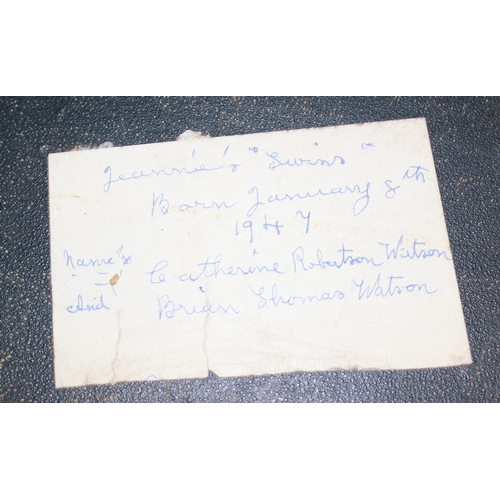 Jeannie's "Twins"
Born January 8th
1947
Name's Catherine Robertson Watson
And Brian Thomas Watson